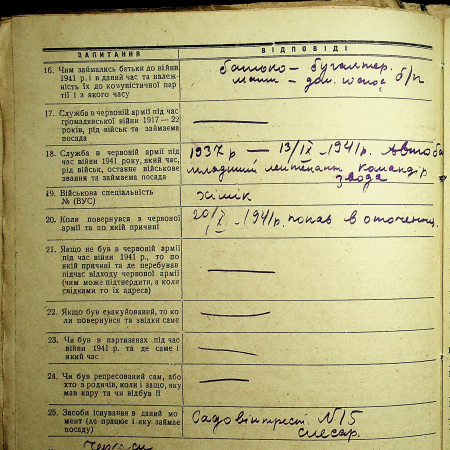 ЗАПИТАННЯ ВІДПОВІДІ
16. Чим займались батьки до війни
1941 р. і в даний час та належ-
ність їх до комуністичної пар-
тії і з якого часу
батько – бугалтер.
мати – дом. б/п
17. Служба в червоній армії під час
громадянської війни 1917—22
років, рід військ та займаєма
посада
18. Служба в червоній армії під
час війни 1941 року, який час,
рід військ, останнє військове
звання та займаєма посада
1937 р — 13/IX -1941р.
младший лейтенант командір
взвода
19. Військова спеціальність
№ (ВУС)
хімік
20. Коли повернувся з червоної
армії та по якій причині
20/X -1941р. попав в оточення,
21. Якщо не був в червоній армії
під час війни 1941 р., то по
якій причині та де перебував
підчас відходу червоної армії
(чим може підтвердити, а коли
свідками то їх адреса)
22. Якщо був евакуйований, то ко
ли повернувся та звідки саме
23. Чи був в партизанах під час
війни 1941 р. та де саме і
який час
24. Чи був репресований сам, або
хто з родичів, коли і защо, яку
мав кару та чи відбув її
25. Засоби існування в даний мо
мент (де працює і яку займає
посаду)
Садовінтресті N15
слесар.